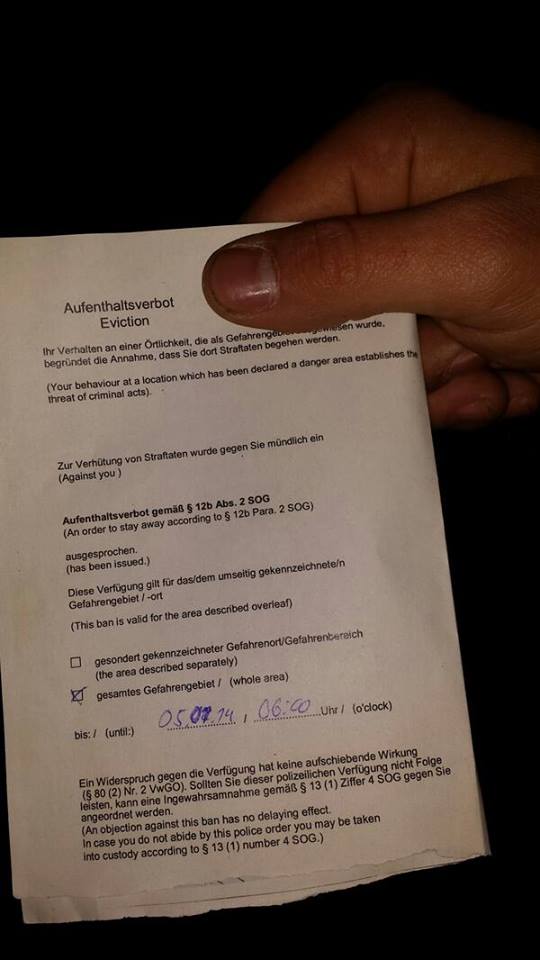 Aufenthaltsverbot
Eviction
Ihr Verhalten an einer Örtlichkeit, die als wurde,
begründet die Annahme, dass Sie dort Straftaten begehen werden.
(Your behaviour at a location which has been declared a danger area establishes the
threat of criminal acts).
Zur Verhütung von Straftaten wurde gegen Sie mündlich ein
(Against you )
Aufenthaltsverbot gemäß § 12b Abs. 2 SOG
(An order to stay away according to § 12b Para. 2 SOG)
ausgesprochen.
(has been issued.)
Diese Verfügung gilt für das/dem umseitig gekennzeichnete/n
Gefahrengebiet / -ort
(This ban is valid for the area described overleaf)
gesondert gekennzeichneter Gefahrenort/Gefahrenbereich
(the area described separately)
gesamtes Gefahrengebiet / (whole area)
bis: / (until:) 05.01.14 , 06:00 Uhr / (o'clock)
Ein Widerspruch gegen die Verfügung hat keine aufschiebende Wirkung
(§ 80 (2) Nr. 2 VwGO). Sollten Sie dieser polizeilichen Verfügung nicht Folge
leisten, kann eine Ingewahrsamnahme gemäß § 13 (1) Ziffer 4 SOG gegen Sie
angeordnet werden.
(An objection against this ban has no delaying effect.
In case you do not abide by this police order you may be taken
into custody according to § 13 (1) number 4 SOG.)